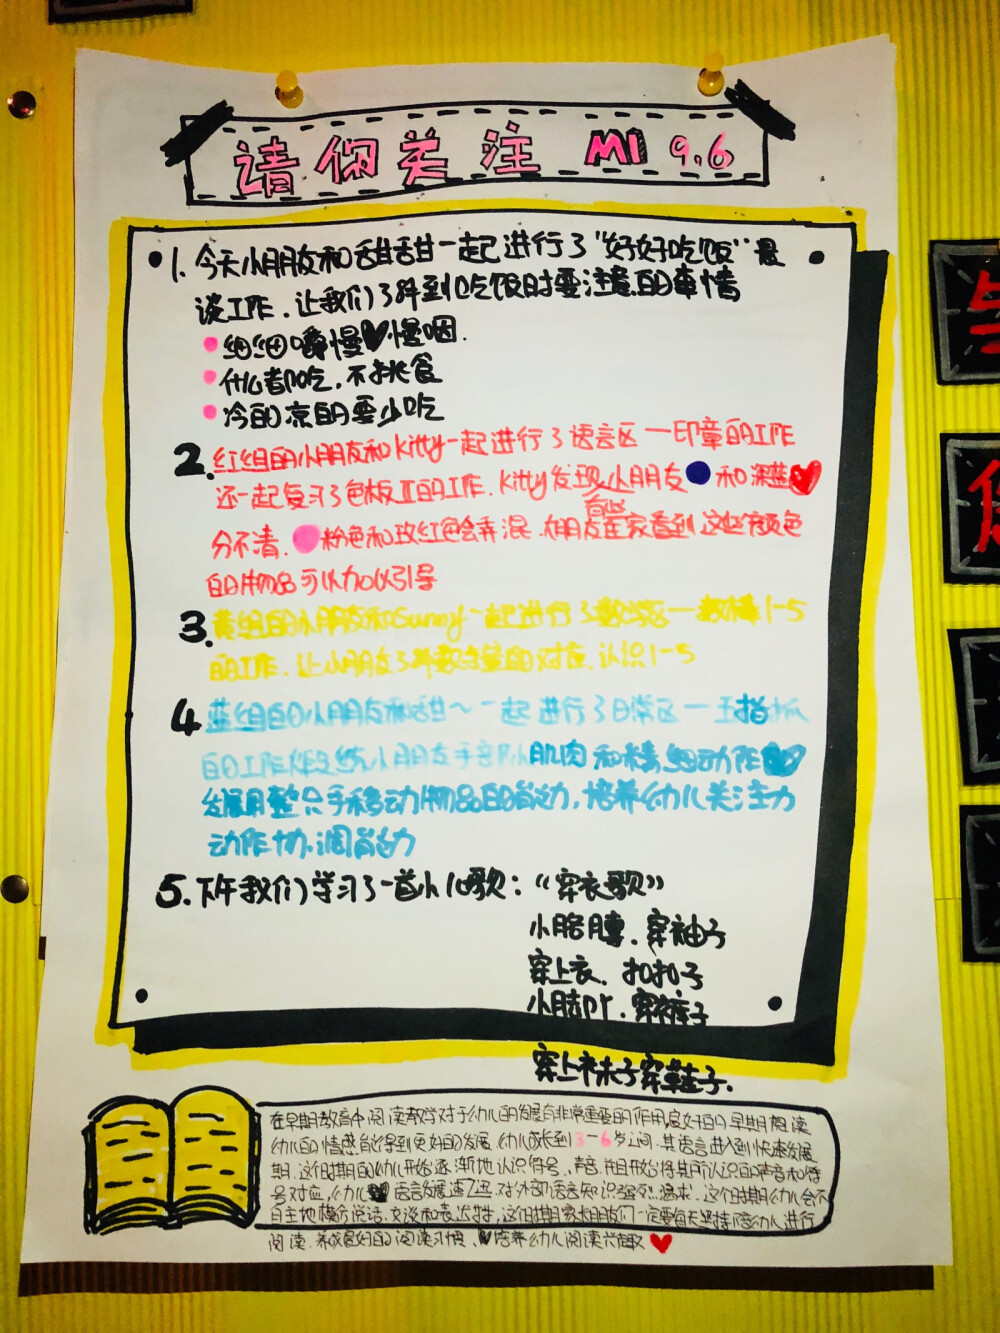 请你关注 M1 9.6
1. 今天小朋友和甜甜一起进行了"好好吃饭"晨
谈工作、让我们了解到吃饭时要注意的事情
细细嚼慢慢咽.
什么都吃,不挑食
冷的凉的要少吃
2. 红组的小朋友和kitty一起进行了语言区一印章的工作
还一起复习了色板Ⅱ的工作.kitty发现小朋友 和深蓝
分不清. 粉色和玫红色会弄混.
在家看到这些颜色
的物品可以加以引导
3. 黄组的小朋友和Sunny一起进行了数学区一数棒1-5
的工作.让小朋友了解数与量的对应.认识1-5
4 蓝组的小朋友和甜~一起进行了日常区一五指抓
的工作锻炼小朋友手部小肌肉和精细动作
发展用整只手移动物品的能力,培养幼儿关注力
动作协调能力
5. 下午我们学习了一首小儿歌:《穿衣歌》
小胳膊.穿袖子
穿上衣.扣扣子
小脚吖.穿裤子
穿上袜子穿鞋子.
在早期教育中阅读教学对于幼儿的发展有非常重要的作用,良好的早期阅读
幼儿的情感能得到更好的发展.幼儿成长到3-6岁之间.其语言进入到快速发展
期.这个时期的幼儿开始逐渐地认识符号、声音,并且开始将其所认识的声音和符
号对应,幼儿 语言发展速飞迅.对外部语言知识强烈渴求.这个时期幼儿会不
自主地模仿说话.交谈和表达 ,这个时期家长朋友们一定要每天坚持陪幼儿进行
阅读.养成良好的阅读习惯、培养幼儿阅读兴趣